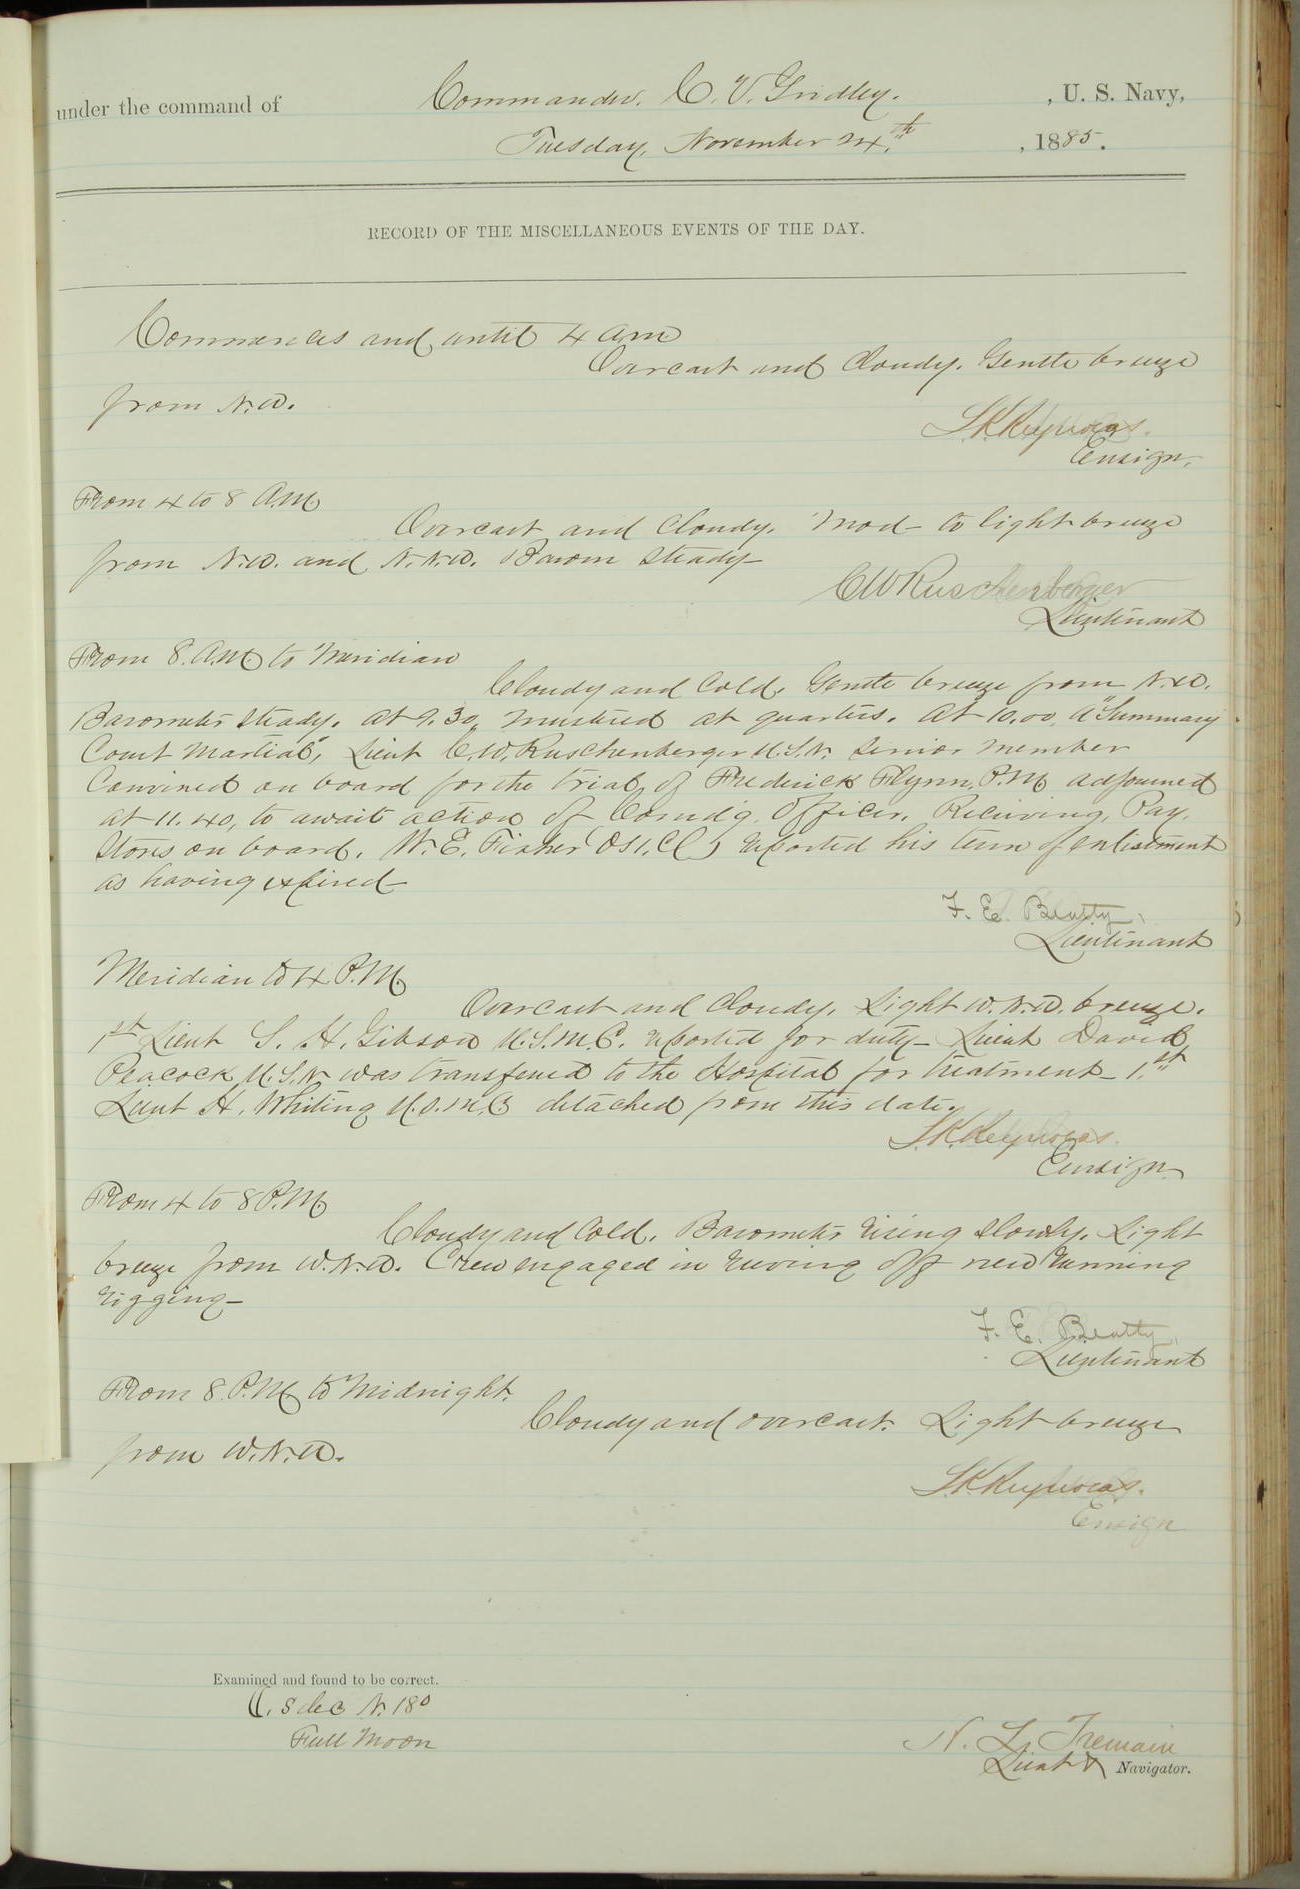 under the command of Commander. C. V. Gridley. , U. S. Navy,
Tuesday, November 24.th , 1885.
RECORD OF THE MISCELLANEOUS EVENTS OF THE DAY.
Commences and until 4 am
Overcast and Cloudy. Gentle breeze
from N.W.
Ensign.
From 4 to 8 A.M.
Overcast and Cloudy. Mod- to light breeze
from N.W. and N.N.W. Barom steady-
C W Ruschenberger
Lieutenant
From 8. A.M. to Meridian
Cloudy and Cold. Gentle breeze from N.W.
Barometer steady. At 9.30, mustered at quarters. At 10.00, A "Summary
Court Martial", Lieut C. W. Ruschenberger U.S.N. Senior Member
Convened on board for the trial of Frederick Flynn, P.M. adjourned
at 11.40, to await action of Comd'g. Officer. Receiving Pay.
Stores on board. W. E. Fisher (OS 1.Cl) reported his term of enlistment
as having expired-
F. E. Beatty,
Lieutenant
Meridian to 4 P.M.
Overcast and Cloudy. Light W.N.W. breeze.
1st Lieut S. H. Gibson U.S.M.C. reported for duty- Lieut David
Peacock U.S.N was transferred to the Hospital for treatment- 1.st
Lieut H. Whiting U.S.M.C detached from this date.
Ensign
From 4 to 8 P.M.
Cloudy and Cold. Barometer rising slowly. Light
breeze from W.N.W. Crew engaged in reeving off new running
rigging-
F. E. Beatty,
Lieutenant
From 8 P.M. to Midnight.
Cloudy and overcast. Light breeze
from W.N.W.
Ensign
Examined and found to be correct.
☾'s dec N. 18°
Full Moon
N. L. Tremain
Lieut & Navigator.